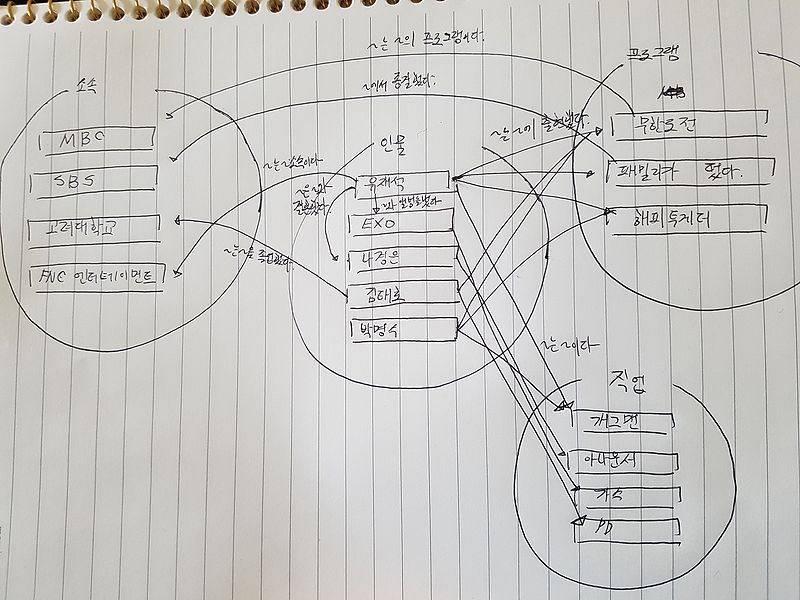 ~는 ~의 프로그램이다.
~에서 종결했다.
소속
MBC
SBS
고려대학교
FNC 엔터테이먼트
인물
유재석
EXO
나경은
김태호
박명수
~는 ~소속이다
~은 ~와
결혼했다.
~는 ~을 졸업했다.
~는 ~에 출연했다.
프로그램
무한도전
패밀리가 떴다.
해피투게더
~는 ~이다
직업
개그맨
아나운서
가수
PD